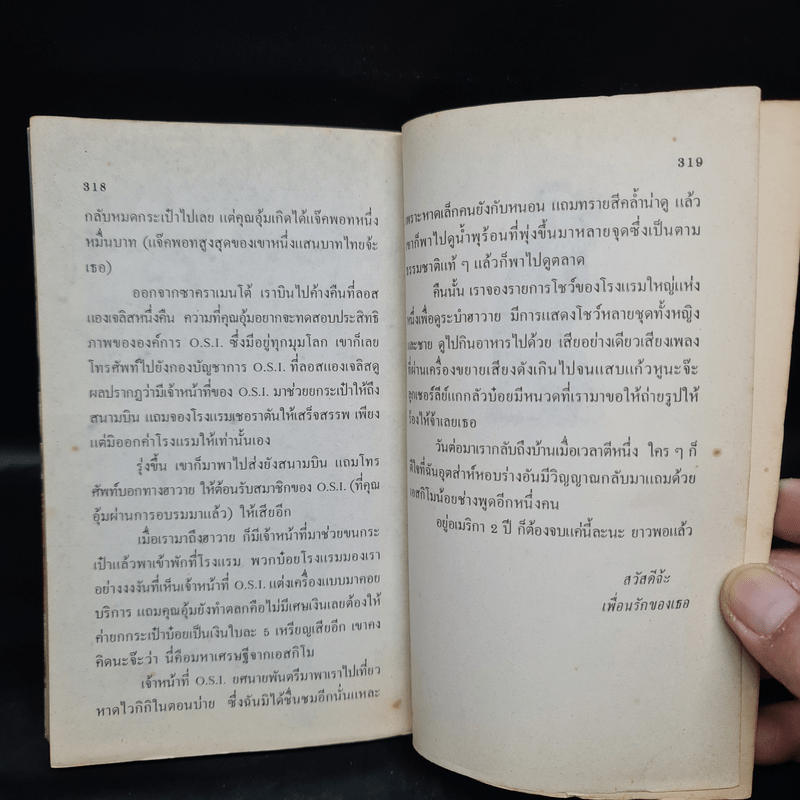 318
กลับหมดกระเป๋าไปเลย แต่คุณอุ้มเกิดได้แจ๊คพอทหนึ่ง
หมื่นบาท (แจ๊คพอทสูงสุดของเขาหนึ่งแสนบาทไทยจ้ะ
เธอ)
ออกจากซาคราเมนโต้ เราบินไปค้างคืนที่ลอส
แองเจลิสหนึ่งคืน ความที่คุณอุ้มอยากจะทดสอบประสิทธิ
ภาพขององค์การ O.S.I. ซึ่งมีอยู่ทุกมุมโลก เขาก็เลย
โทรศัพท์ไปยังกองบัญชาการ O.S.I. ที่ลอสแองเจลิสดู
ผลปรากฏว่ามีเจ้าหน้าที่ของ O.S.I. มาช่วยยกระเป๋าให้ถึง
สนามบิน แถมจองโรงแรมเชอราตันให้เสร็จสรรพ เพียง
แต่มิออกค่าโรงแรมให้เท่านั้นเอง
รุ่งขึ้น เขาก็มาพาไปส่งยังสนามบิน แถมโทร
ศัพท์บอกทางฮาวาย ให้ต้อนรับสมาชิกของ O.S.I. (ที่คุณ
อุ้มผ่านการอบรมมาแล้ว) ให้เสียอีก
เมื่อเรามาถึงฮาวาย ก็มีเจ้าหน้าที่มาช่วยขนกระ
เป๋าแล้วพาเข้าพักที่โรงแรม พวกบ๋อยโรงแรมมองเรา
อย่างงงงันที่เห็นเจ้าหน้าที่ O.S.I. แต่งเครื่องแบบมาคอย
บริการ แถมคุณอุ้มยังทำตลกคือไม่มีเศษเงินเลยต้องให้
ค่ายกกระเป๋าบ๋อยเป็นเงินใบละ 5 เหรียญเสียอีก เขาคง
คิดนะจ๊ะว่า นี่คือมหาเศรษฐีจากเอสกิโม
เจ้าหน้าที่ O.S.I. ยศนายพันตรีมาพาเราไปเที่ยว
หาดไวกิกิในตอนบ่าย ซึ่งฉันมิได้ชื่นชมอีกนั่นแหละ
319
เพราะหาดเล็กคนยังกับหนอน แถมทรายสีคล้ำน่าดู แล้ว
เขาก็พาไปดูน้ำพุร้อนที่พุ่งขึ้นมาหลายจุดซึ่งเป็นตาม
ธรรมชาติแท้ ๆ แล้วก็พาไปดูตลาด
คืนนั้น เราจองรายการโชว์ของโรงแรมใหญ่แห่ง
หนึ่งเพื่อดูระบำฮาวาย มีการแสดงโชว์หลายชุดทั้งหญิง
และชาย ดูไปกินอาหารไปด้วย เสียอย่างเดียวเสียงเพลง
ที่ผ่านเครื่องขยายเสียงดังเกินไปจนแสบแก้วหูนะจ๊ะ
ลูกเชอร์ลีย์แกกลัวบ๋อยมีหนวดที่เรามาขอให้ถ่ายรูปให้
ร้องไห้จ้าเลยเธอ
วันต่อมาเรากลับถึงบ้านเมื่อเวลาตีหนึ่ง ใคร ๆ ก็
ดีใจที่ฉันอุตส่าห์หอบร่างอันมีวิญญาณกลับมาแถมด้วย
เอสกิโมน้อยช่างพูดอีกหนึ่งคน
อยู่อเมริกา 2 ปี ก็ต้องจบแค่นี้ละนะ ยาวพอแล้ว
สวัสดีจ้ะ
เพื่อนรักของเธอ